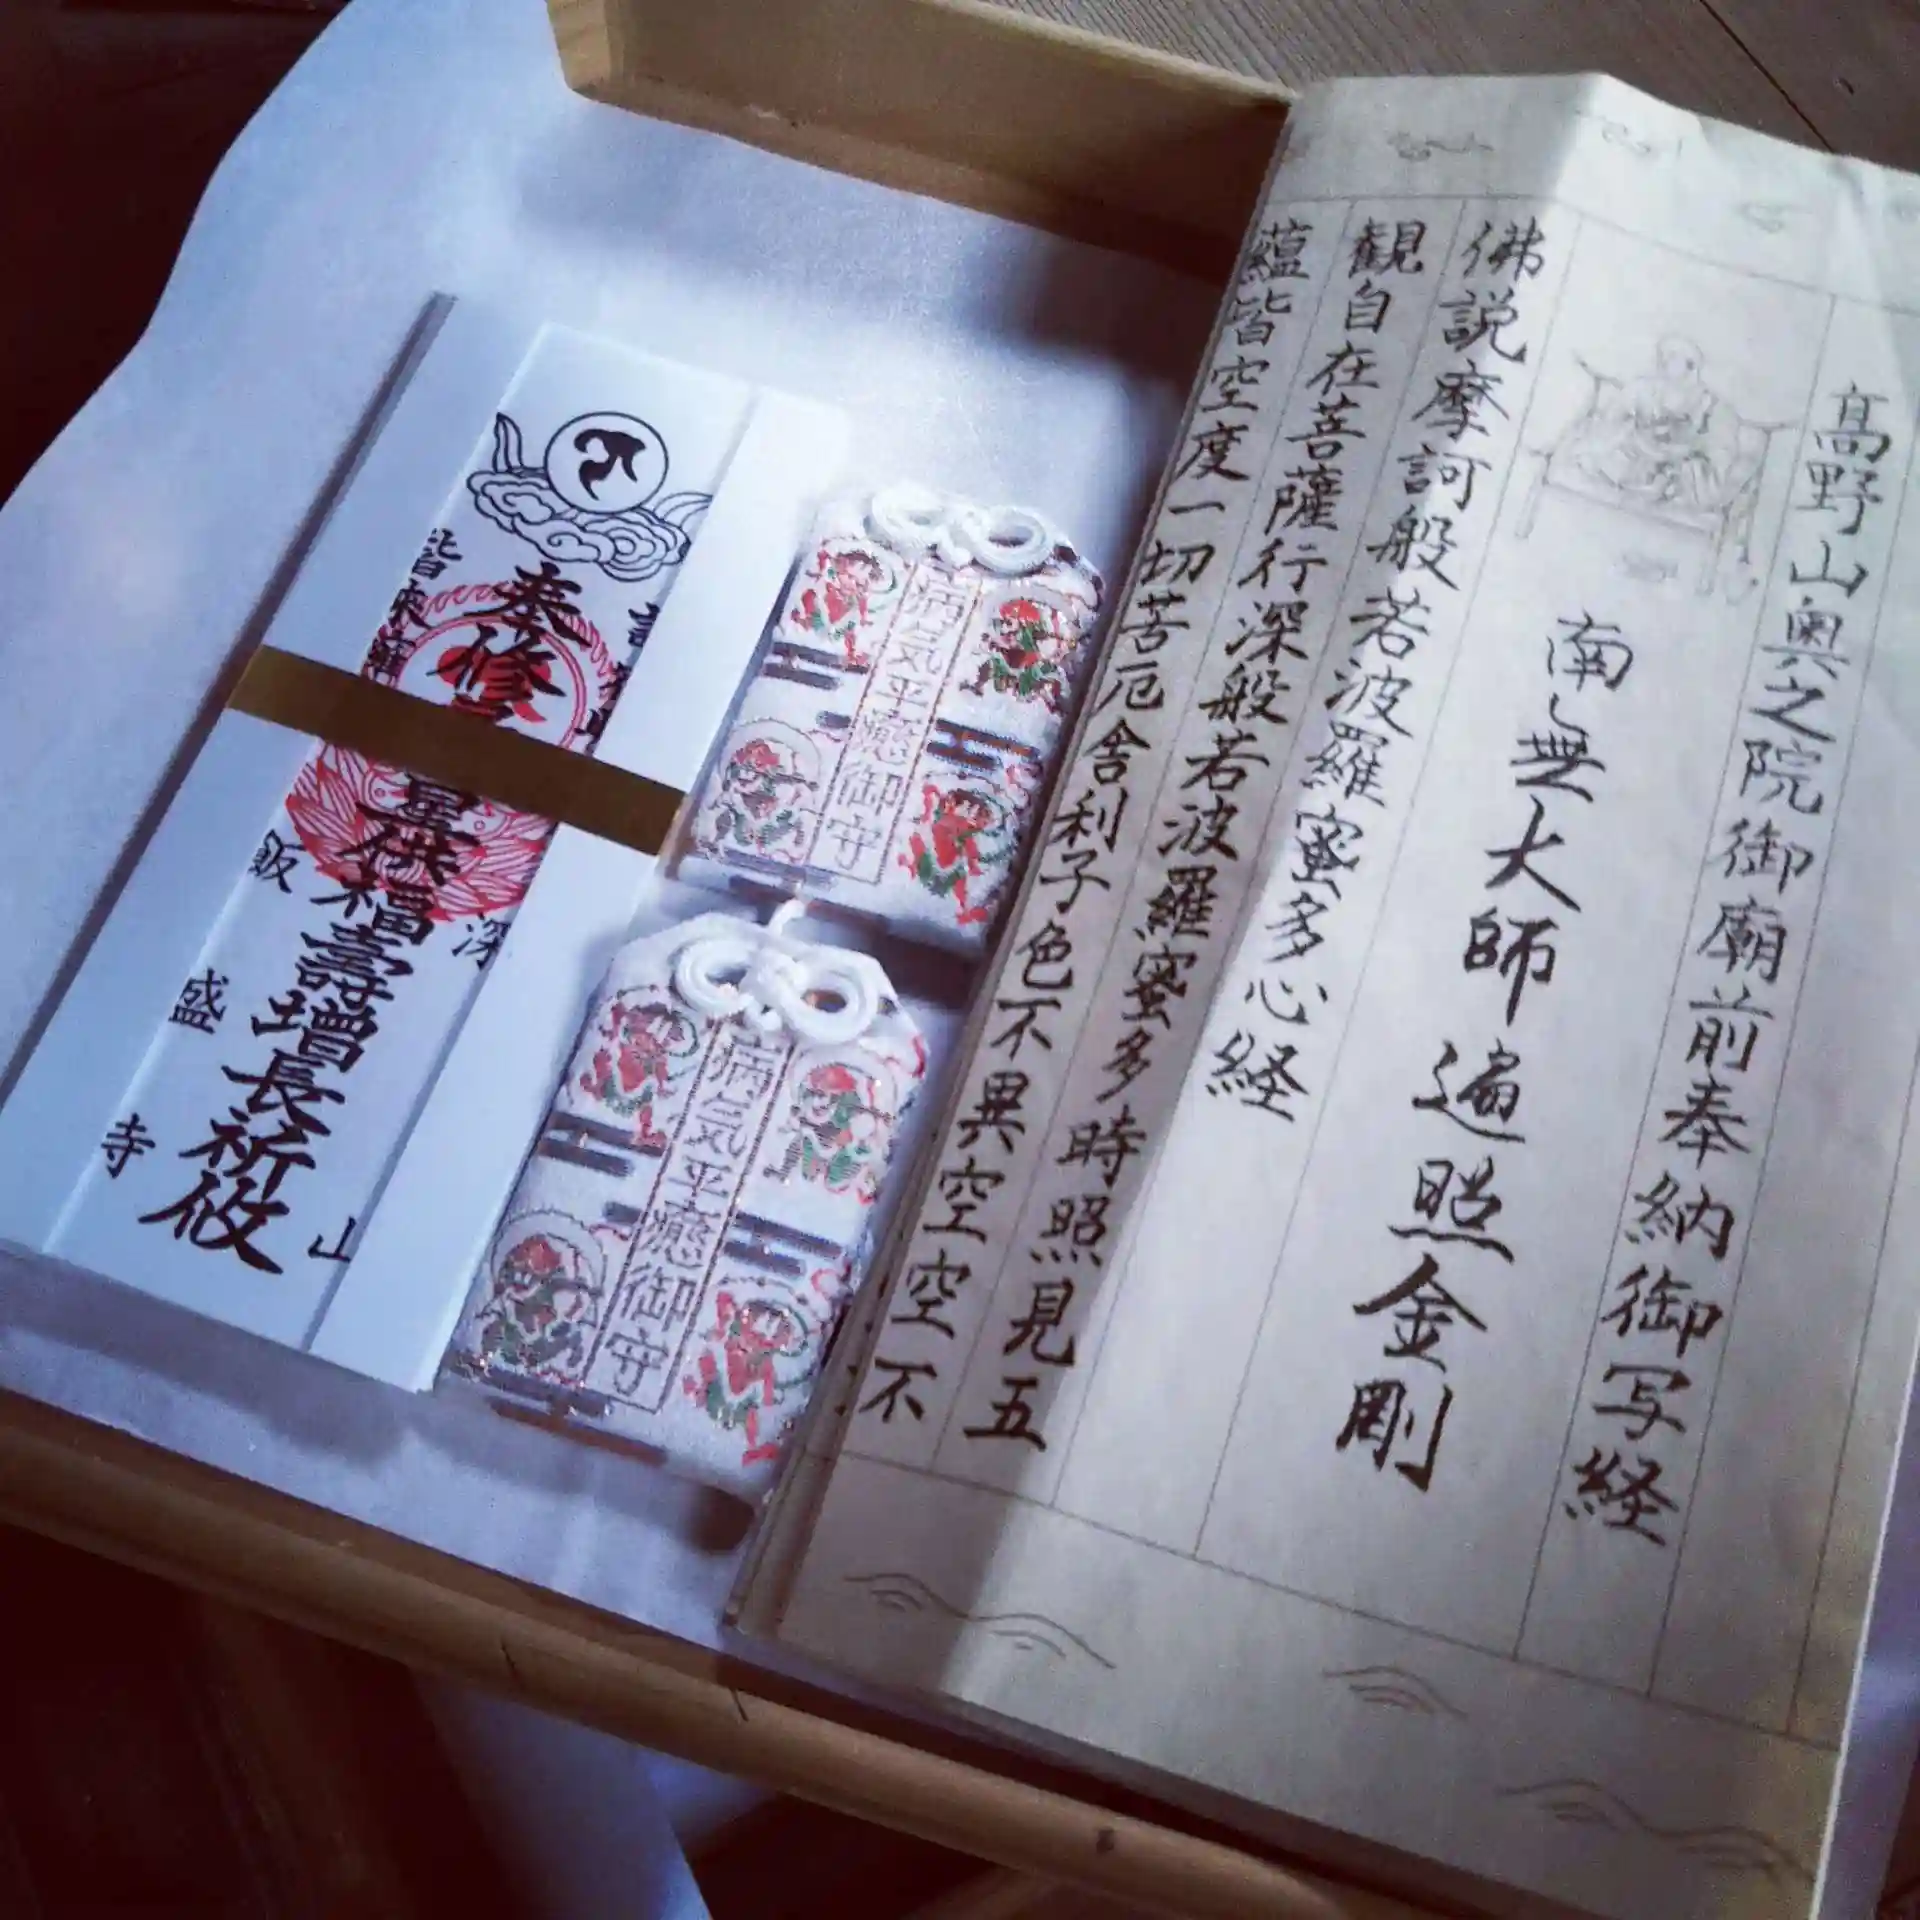 高野山奥之院御廟前奉納御写経
南無大師遍照金剛
佛説摩訶般若波羅蜜多心経
観自在菩薩行深般若波羅蜜多時照見五
蘊皆空度一切苦厄舎利子色不異空空不
病気平癒御守
病気平癒御守
奉修
星供福壽増長祈攸
深
山
皆来
飯
盛
寺